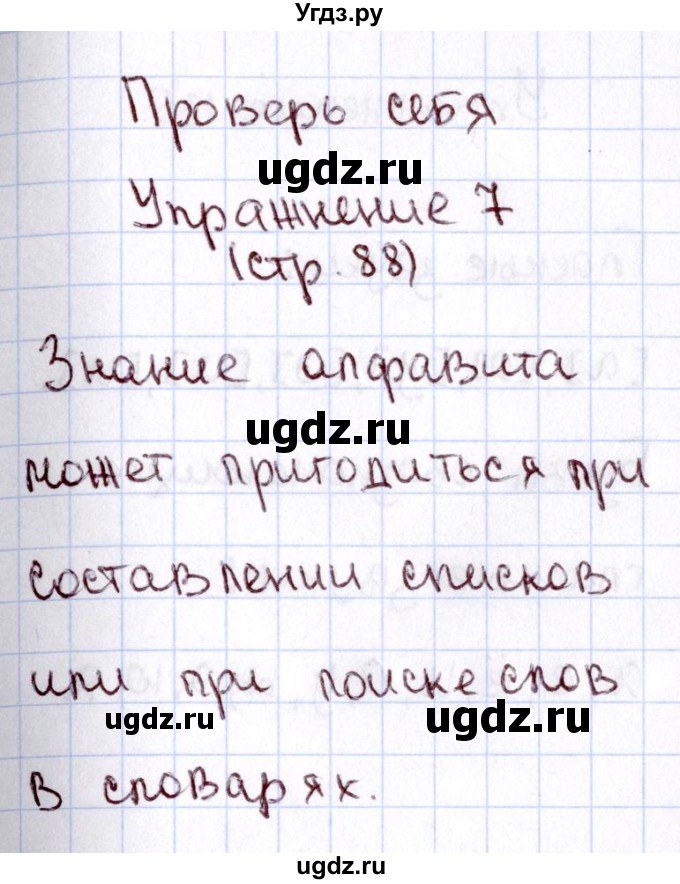 Угдз.ру
Проверь себя
ugdz.ru
Упражнение 7
(стр. 88)
Знание алфавита
ugdz.ru
может пригодиться при
составлении списков
или при поиске слов
ugdz.ru ugdz.ru
в словарях.
ugdz.ru